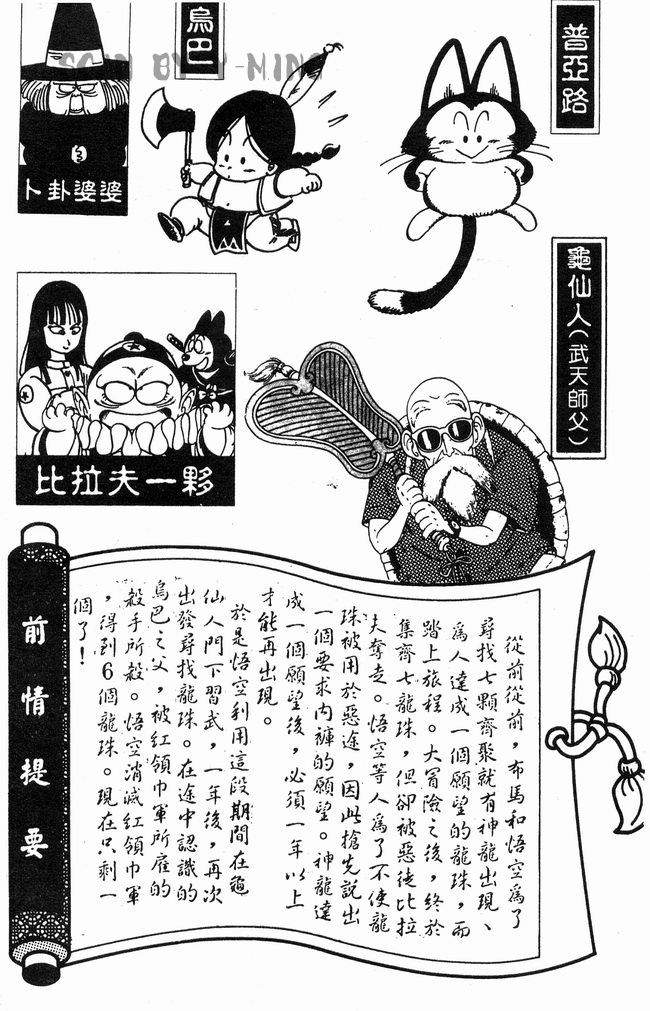 SCAN BY Y-NING
普亞路
烏巴
卜卦婆婆
龜仙人（武天師父）
比拉夫一夥
前情提要
從前從前，布馬和悟空爲了
尋找七顆齊聚就有神龍出現、
爲人達成一個願望的龍珠，而
踏上旅程。大冒險之後，終於
集齊七龍珠，但卻被惡徒比拉
夫奪走。悟空等人爲了不使龍
珠被用於惡途，因此搶先説出
一個要求內褲的願望。神龍達
成一個願望後，必須一年以上
才能再出現。
於是悟空利用這段期間在龜
仙人門下習武，一年後，再次
出發尋找龍珠。在途中認識的
烏巴之父，被紅領巾軍所雇的
殺手所殺。悟空消滅紅領巾軍
，得到6個龍珠。現在只剩一
個了！